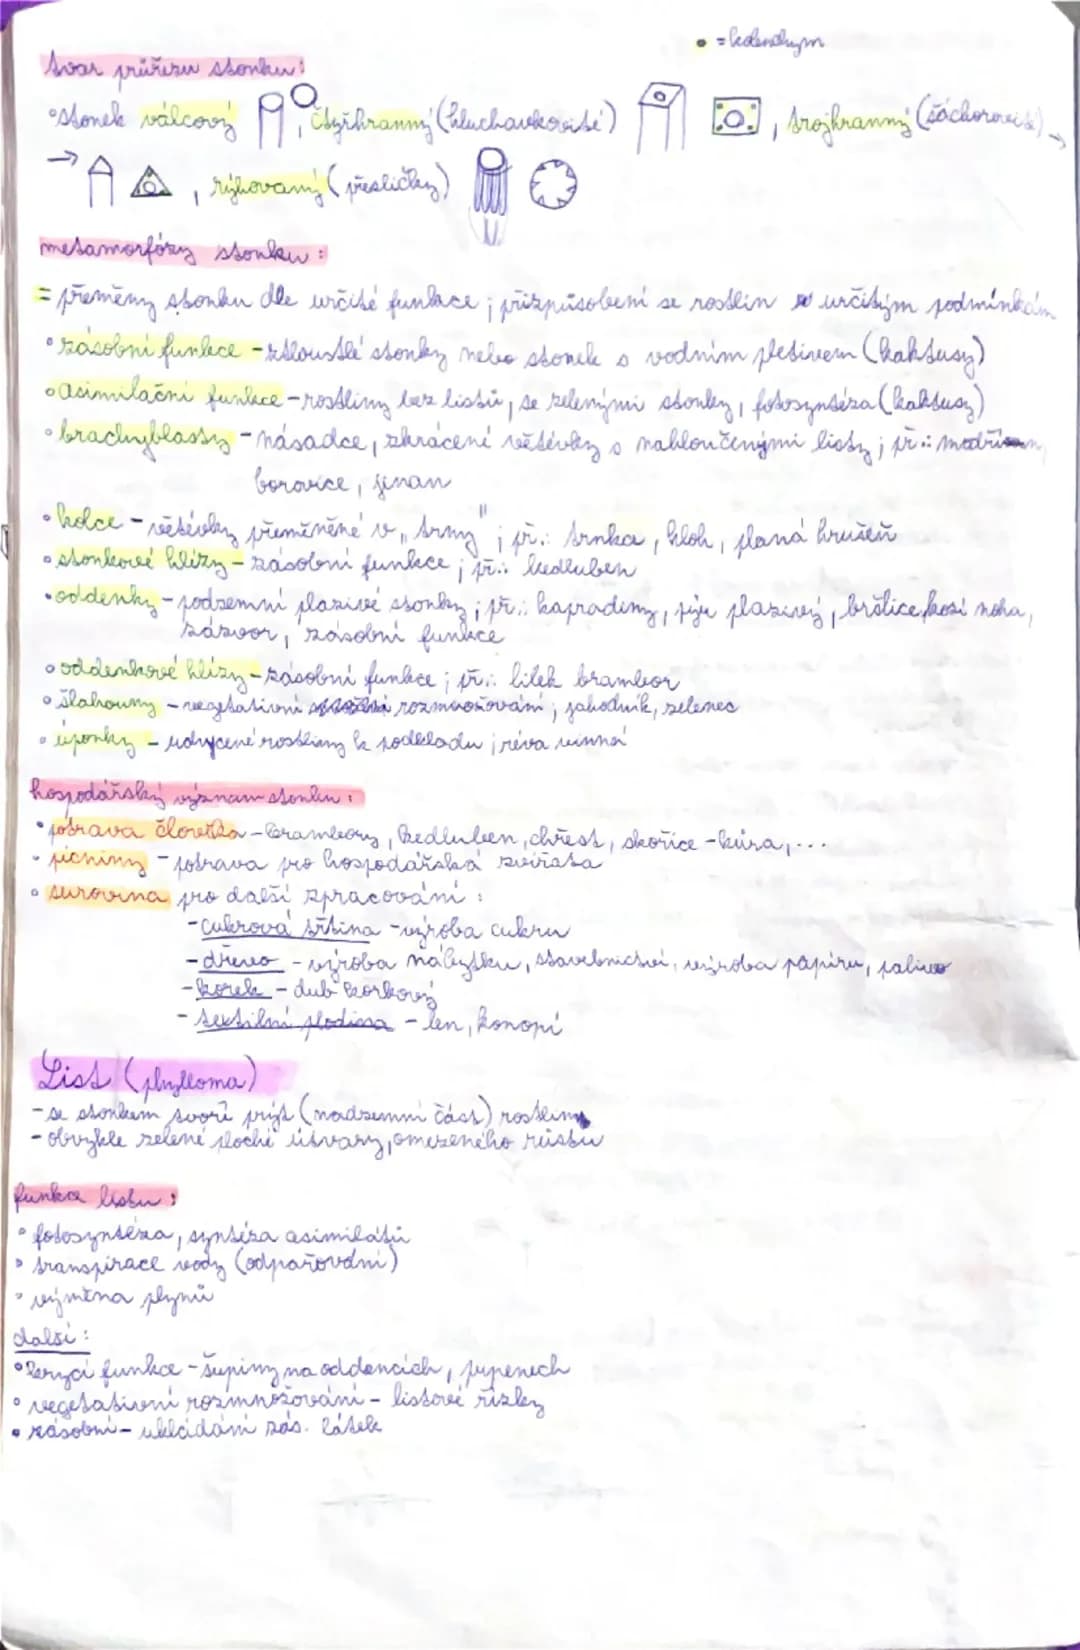 • = kolenchym
tvar průřezu stonku:
• stonek válcový , čtyřhranný (hluchavkovité) , trojhranný (šáchorovité) →
→ , rýhovaný (přesličky)
metamorfózy stonku :
= přeměny stonku dle určité funkce ; přizpůsobení se rostlin určitým podmínkám
• zásobní funkce - ztloustlé stonky nebo stonek s vodním pletivem (kaktusy)
• asimilační funkce - rostliny bez listů, se zelenými stonky, fotosyntéza (kaktusy)
• brachyblasty - násadce, zkrácené větévky s nahloučenými listy ; př.: modřín,
borovice, jinan
• kolce - větévky přeměněné v „trny" ; př.: trnka, hloh, planá hrušeň
• stonkové hlízy - zásobní funkce ; př.: kedluben
• oddenky - podzemní plazivé stonky ; př.: kapradiny, pýr plazivý, bršlice kozí noha,
zázvor, zásobní funkce
• oddenkové hlízy - zásobní funkce ; př.: lilek brambor
• šlahouny - vegetativní rozmnožování ; jahodník, zelenec
• úponky - uchycené rostliny k podkladu ; réva vinná
hospodářský význam stonku :
• potrava člověka - brambory, kedluben, chřest, skořice - kůra, ...
• pícniny - potrava pro hospodářská zvířata
• surovina pro další zpracování :
- cukrová třtina - výroba cukru
- dřevo - výroba nábytku, stavebnictví, výroba papíru, palivo
- korek - dub korkový
- textilní plodina - len, konopí
List (phylloma)
- se stonkem tvoří prýt (nadzemní část) rostliny
- obvykle zelené ploché útvary, omezeného růstu
funkce listu :
• fotosyntéza, syntéza asimilátů
• transpirace vody (odpařování)
• výměna plynů
další :
• krycí funkce - šupiny na oddencích, pupenech
• vegetativní rozmnožování - listové řízky
• zásobní - ukládání zás. látek